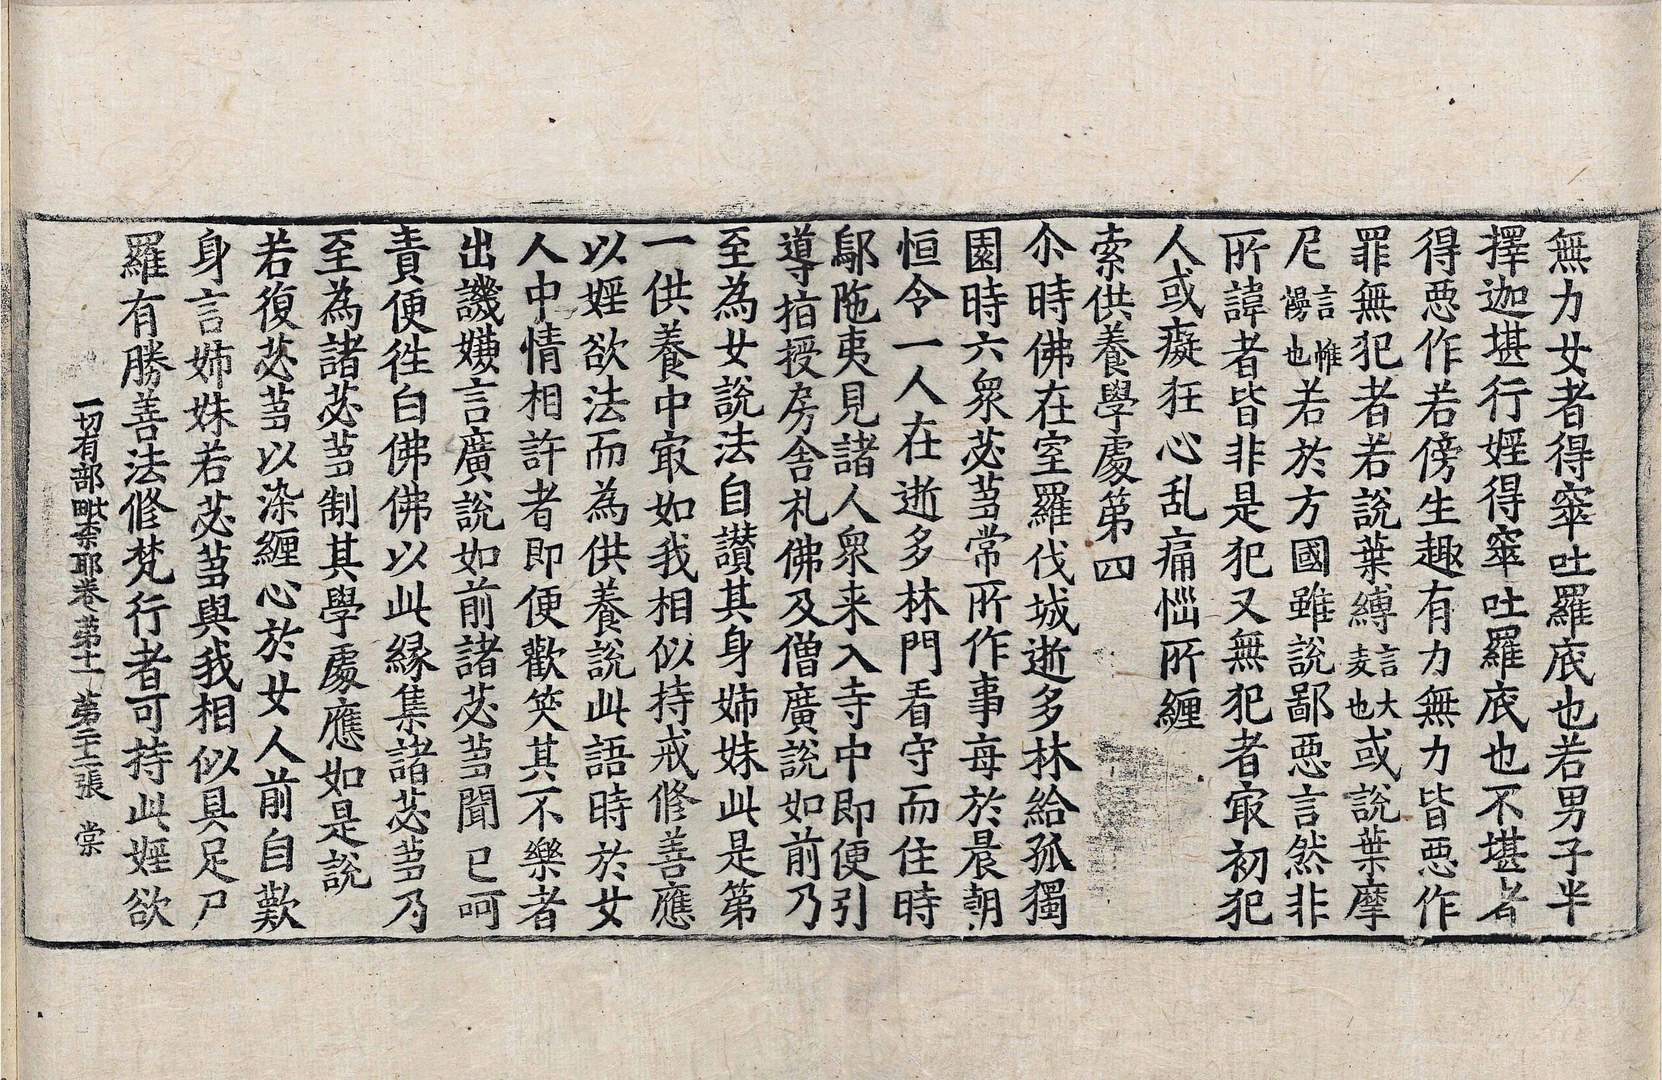 無力女者得窣吐羅底也若男子半
擇迦堪行婬得窣吐羅底也不堪者
得惡作若傍生趣有力無力皆惡作
罪無犯者若說葉縛言大麦也或說葉摩
尼言帷慢也若於方國雖說鄙惡言然非
所諱者皆非是犯又無犯者㝡初犯
人或癡狂心乱痛惱所纏
索供養學處第四
尒時佛在室羅伐城逝多林給孤獨
園時六衆苾芻常所作事每於晨朝
恒令一人在逝多林門看守而住時
鄔陁夷見諸人衆来入寺中即便引
導指授房舍礼佛及僧廣說如前乃
至為女說法自讃其身姊妹此是第
一供養中㝡如我相似持戒修善應
以婬欲法而為供養說此語時於女
人中情相許者即便歡笑其不樂者
出譏嫌言廣說如前諸苾芻聞已呵
責便徃白佛佛以此緣集諸苾芻乃
至為諸苾芻制其學處應如是說
若復苾芻以染纏心於女人前自歎
身言姊妹若苾芻與我相似具足尸
羅有勝善法修梵行者可持此婬欲
一切有部毗奈耶卷第十一 第二十二張 棠